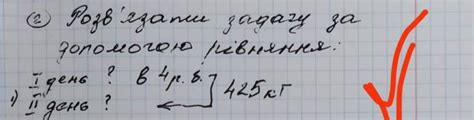 ② Розв'язати задачу за
допомогою рівняння:
I день ? в 4 р. б.
1) II день ? 425 кг